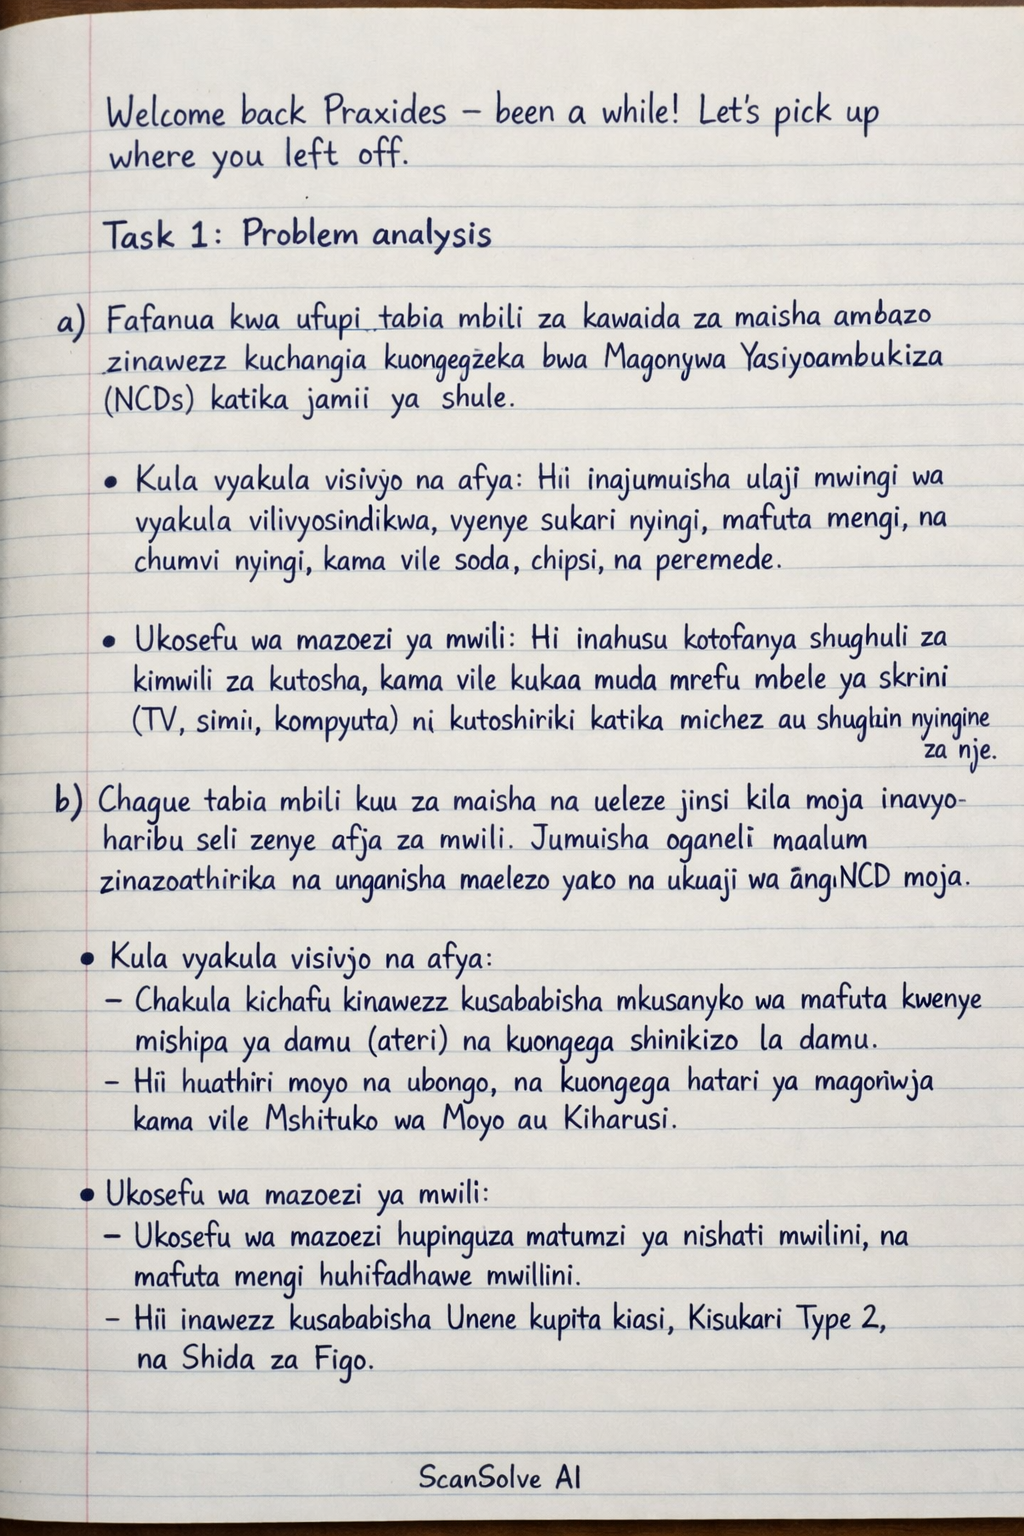 Welcome back Praxides – been a while! Let's pick up
where you left off.
Task 1: Problem analysis
a) Fafanua kwa ufupi tabia mbili za kawaida za maisha ambazo
zinawezz kuchangia kuongegzeka bwa Magonywa Yasiyoambukiza
(NCDs) katika jamii ya shule.
• Kula vyakula visivyo na afya: Hii inajumuisha ulaji mwingi wa
vyakula vilivyosindikwa, vyenye sukari nyingi, mafuta mengi, na
chumvi nyingi, kama vile soda, chipsi, na peremede.
• Ukosefu wa mazoezi ya mwili: Hi inahusu kotofanya shughuli za
kimwili za kutosha, kama vile kukaa muda mrefu mbele ya skrini
(TV, simii, kompyuta) ni kutoshiriki katika michez au nyingine
za nje.
b) Chague tabia mbili kuu za maisha na ueleze jinsi kila moja inavyo-
haribu seli zenye afja za mwili. Jumuisha oganeli maalum
zinazoathirika na unganisha maelezo yako na ukuaji wa NCD moja.
• Kula vyakula visivjo na afya:
– Chakula kichafu kinawezz kusababisha mkusanyko wa mafuta kwenye
mishipa ya damu (ateri) na kuongega shinikizo la damu.
– Hii huathiri moyo na ubongo, na kuongega hatari ya
kama vile Mshituko wa Moyo au Kiharusi.
• Ukosefu wa mazoezi ya mwili:
– Ukosefu wa mazoezi hupinguza matumzi ya nishati mwilini, na
mafuta mengi huhifadhawe mwillini.
– Hii inawezz kusababisha Unene kupita kiasi, Kisukari Type 2,
na Shida za Figo.
ScanSolve AI